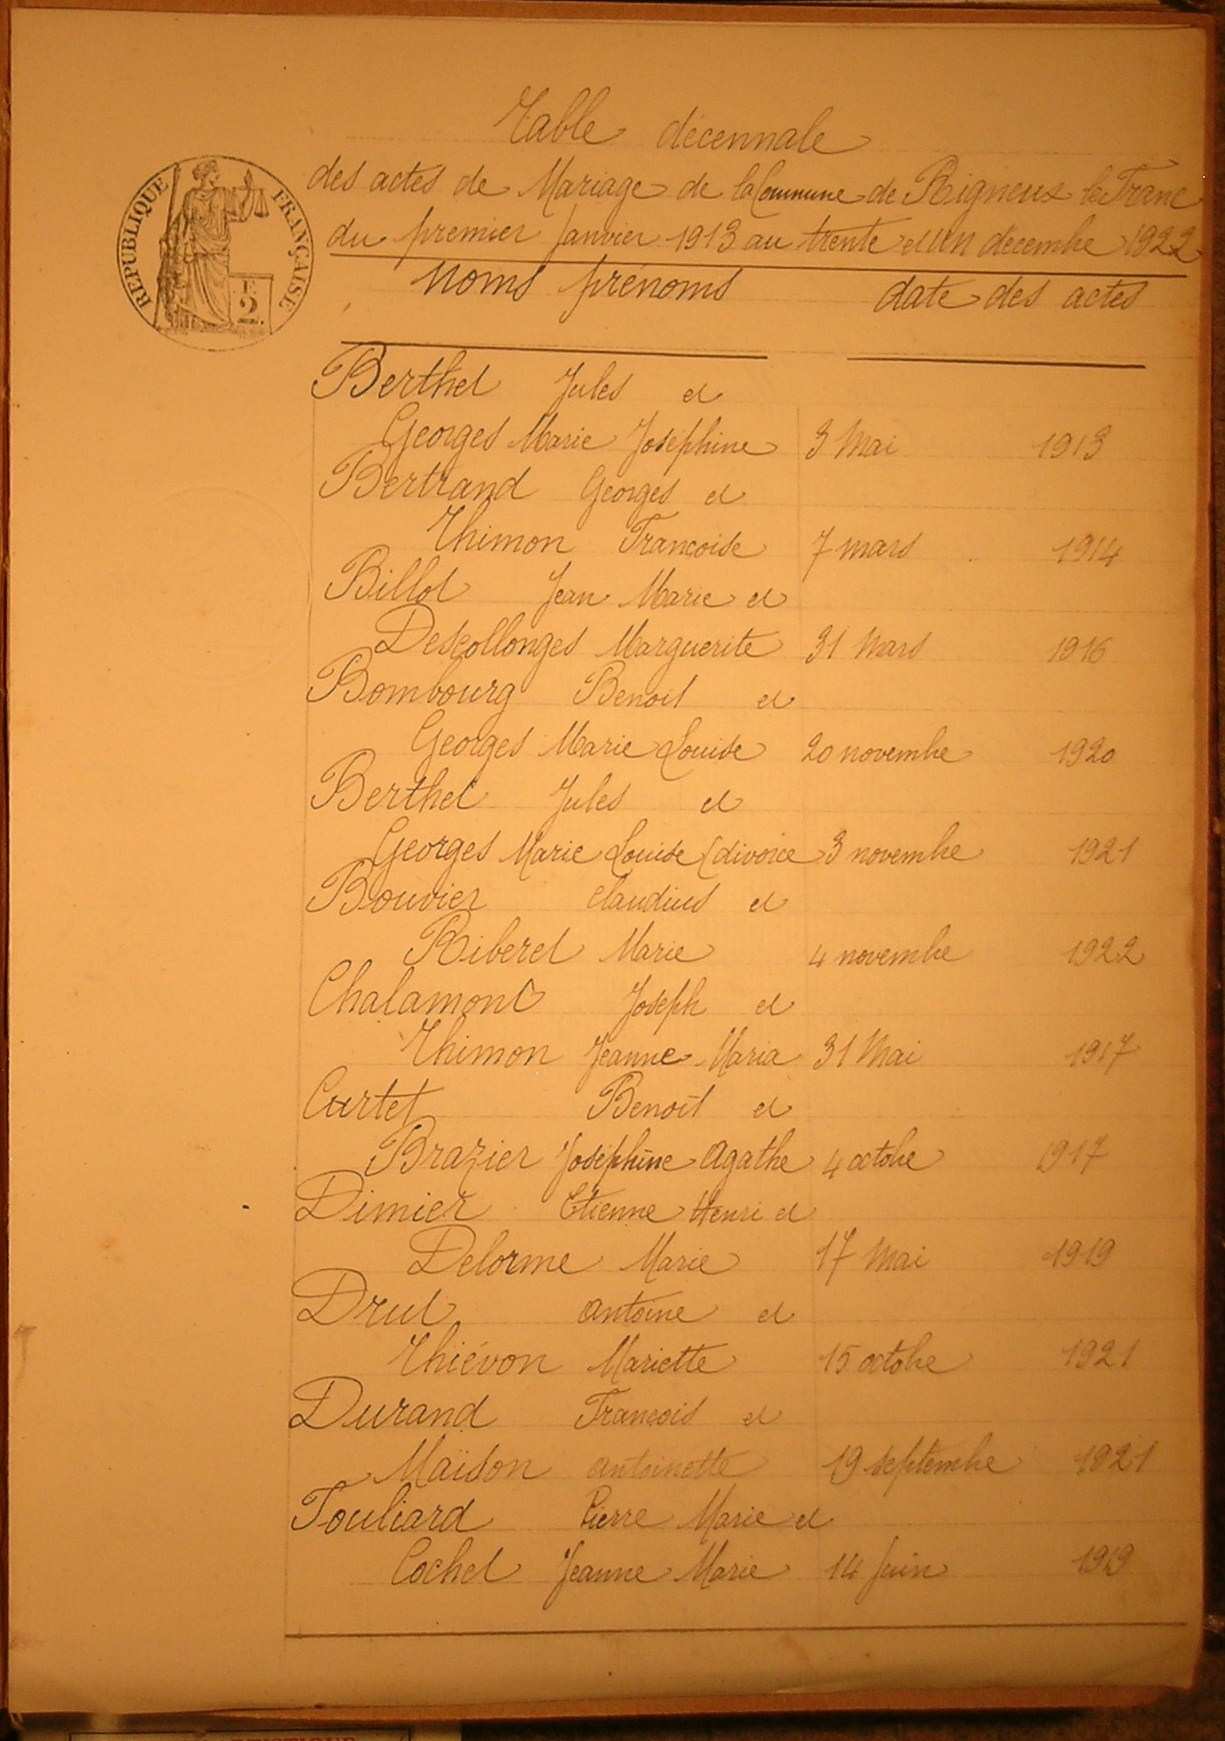 Table décennale
des actes de Mariage de la Commune de Rigneux le Franc
du premier Janvier 1913 au trente et un decembre 1922
RÉPUBLIQUE FRANÇAISE
F.
2
noms prénoms date des actes
Berthet Jules et
Georges Marie Joséphine 3 Mai 1913
Bertrand Georges et
Thimon Francoise 7 mars 1914
Billot Jean Marie et
Descollonges Marguerite 31 Mars 1916
Bombourg Benoit et
Georges Marie Louise 20 novembre 1920
Berthet Jules et
Georges Marie Louise (divorce 3 novembre 1921
Bouvier Claudius et
Riberet Marie 4 novembre 1922
Chalamont Joseph et
Thimon Jeanne Maria 31 Mai 1917
Curtet Benoît et
Brazier Joséphine Agathe 4 octobre 1917
Dimier Etienne Henri et
Delorme Marie 17 Mai 1919
Drut Antoine et
Thiévon Mariette 15 octobre 1921
Durand François et
Maïson Antoinette 19 septembre 1921
Fouliard Pierre Marie et
Cochet Jeanne Marie 14 Juin 1919